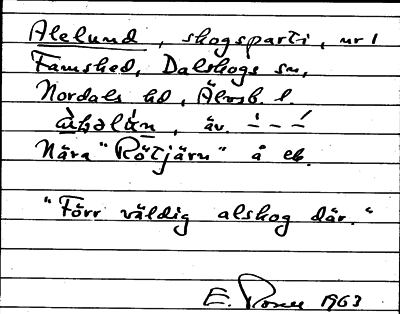 Alelund, skogsparti, nr 1
Famshed, Dalskogs sn,
Nordals hd, Älvsb. l.
, äv. –́ – –́
Nära "Rötjärn" å eb.
"Förr väldig alskog där."
E. 1963